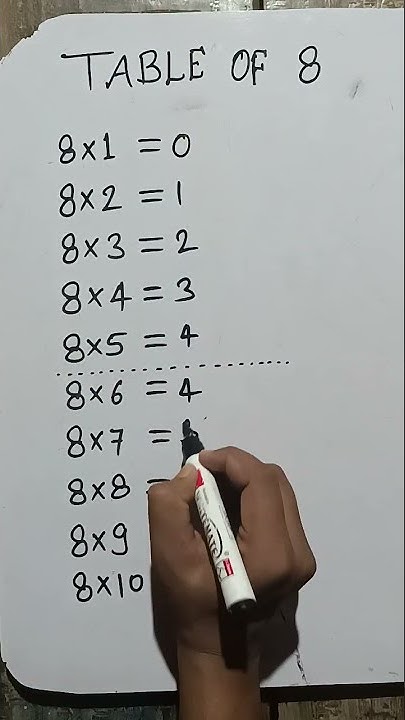 TABLE OF 8
8×1 = 0
8×2 = 1
8×3 = 2
8×4 = 3
8×5 = 4
8×6 = 4
8×7 =
8×8 =
8×9
8×10